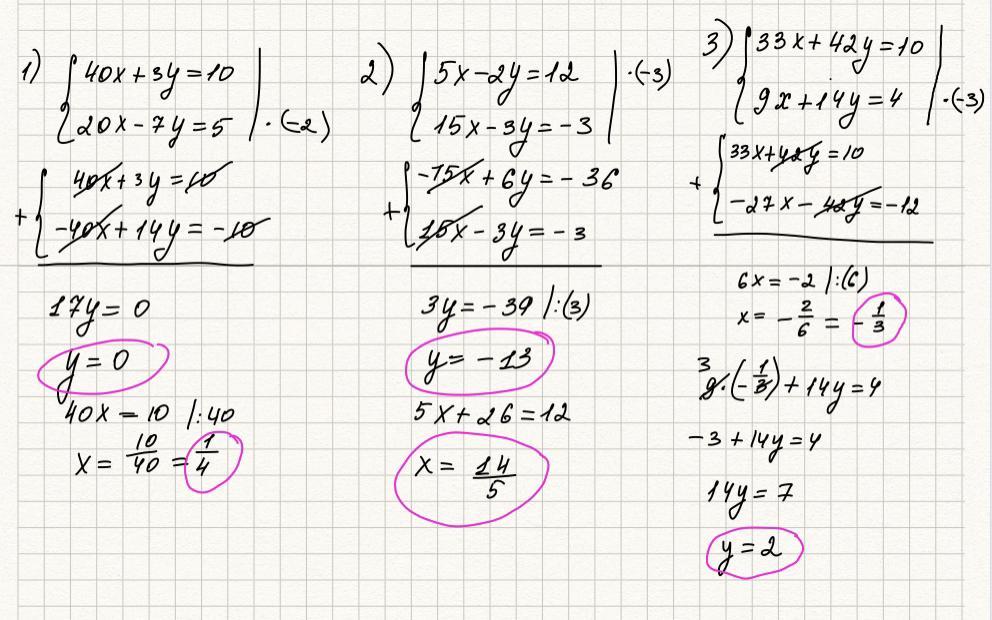 1) { 40x + 3y = 10
20x - 7y = 5 | · (-2)
+ { 40x + 3y = 10
-40x + 14y = -10
17y = 0
y = 0
40x = 10 /:40
x = 10/40 = 1/4
2) { 5x - 2y = 12 | · (-3)
15x - 3y = -3
+ { -15x + 6y = -36
15x - 3y = -3
3y = -39 /:(3)
y = -13
5x + 26 = 12
x = 14/5
3) { 33x + 42y = 10
9x + 14y = 4 | · (-3)
+ { 33x + 42y = 10
-27x - 42y = -12
6x = -2 /:(6)
x = -2/6 = -1/3
3
9 · (-1/3) + 14y = 4
-3 + 14y = 4
14y = 7
y = 2